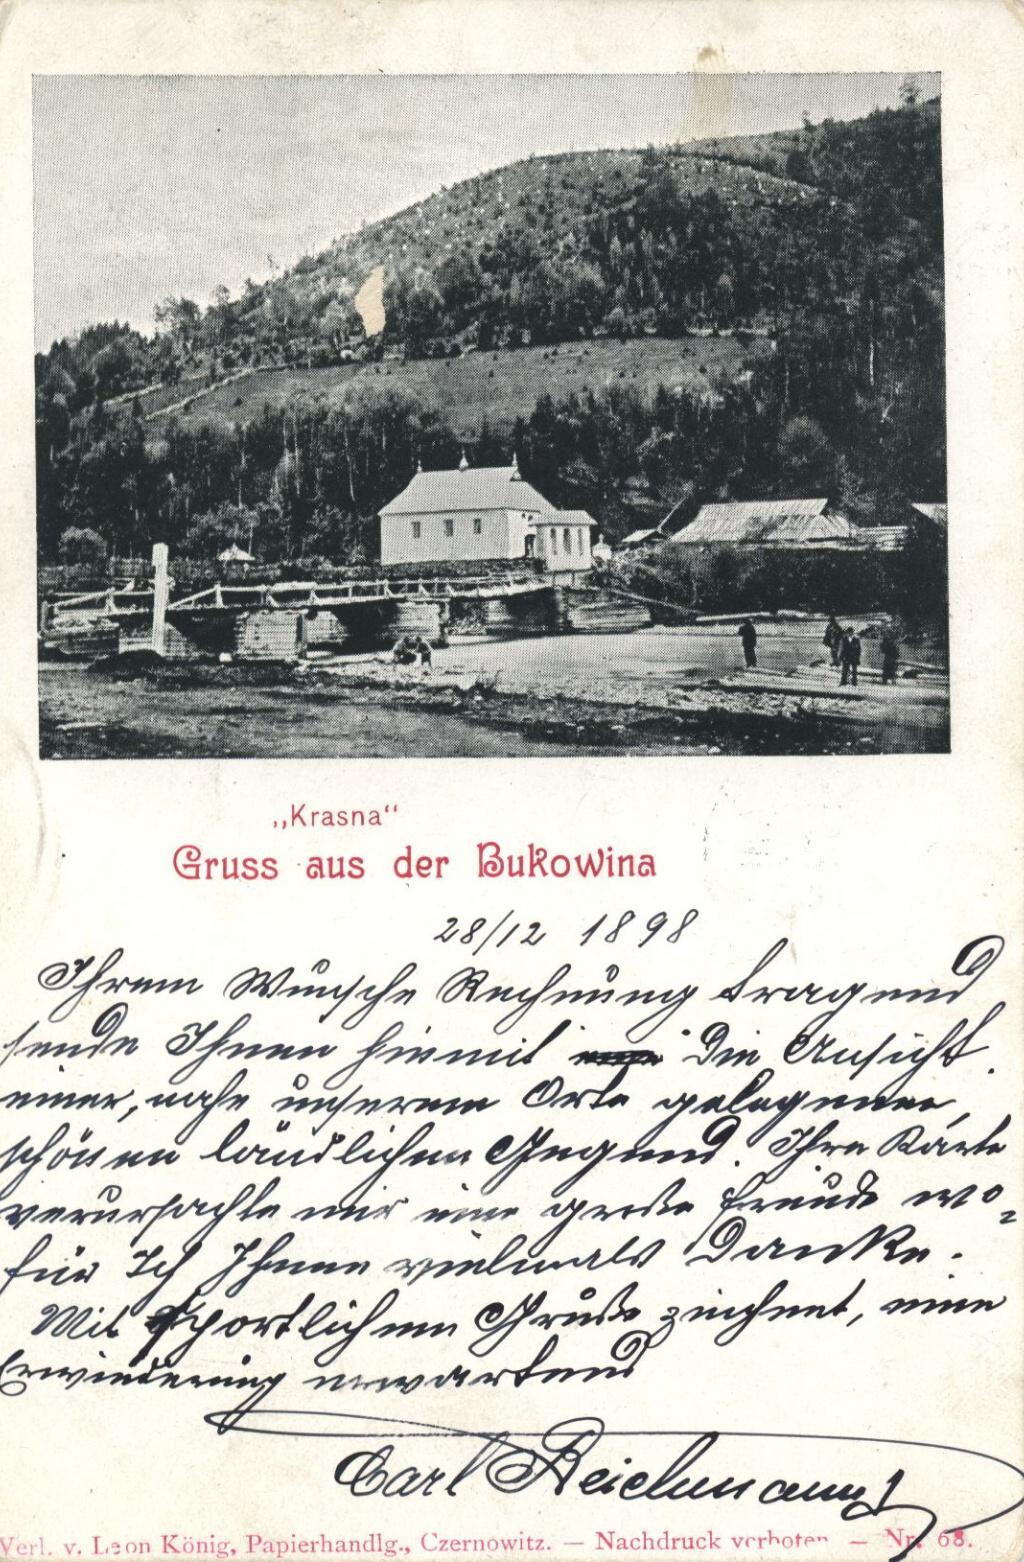 „Krasna“
Gruss aus der Bukowina
28/12 1898
Ihrem Wunsche Rechnung tragend
sende Ihnen hiemit die Ansicht
einer, nahe unserem Orte gelegenen,
schönen ländlichen Gegend. Ihre Karte
verursachte mir eine große Freude wo-
für Ich Ihnen vielmals Danke.
Mit sportlichem Gruße zeichnet, eine
Erwiederung erwartend
Carl Reichmann
Verl. v. Leon König, Papierhandlg., Czernowitz. — Nachdruck verboten — Nr. 68.